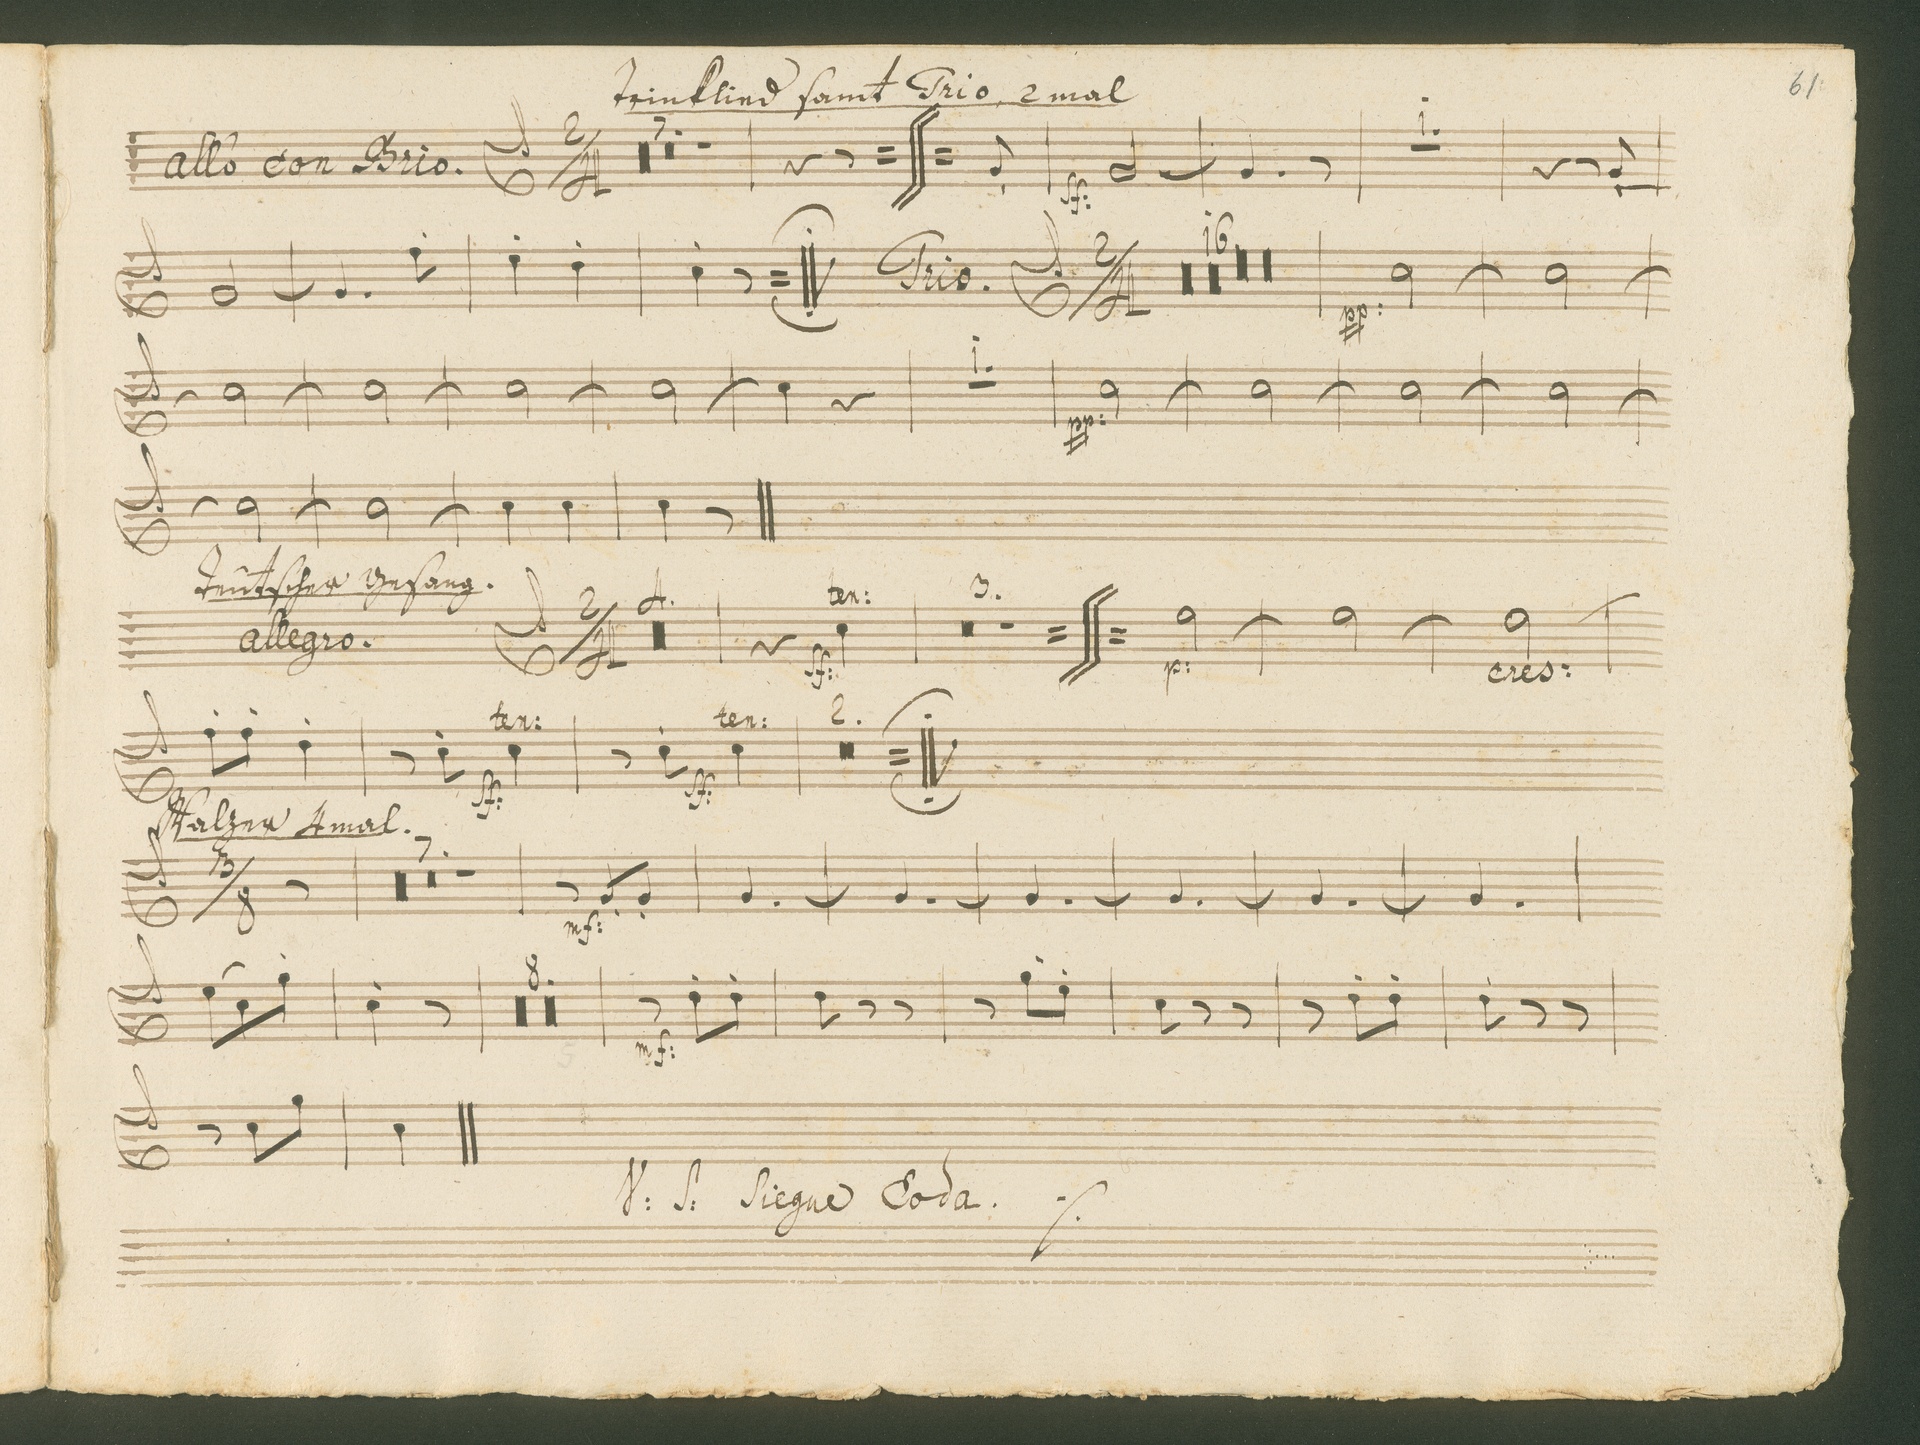 Trinklied samt Trio, 2 mal
61
allo con Brio. 2/4 7. 1.
sf:
Trio. 2/4 16
pp:
1.
pp:
Teütscher Gesang.
allegro. 2/4 4. ten: 3.
sf: p: cres:
ten: ten: 2.
sf: sf:
Walzer 4mal.
3/8 7.
mf:
8.
mf:
V: S: Siegue Coda.